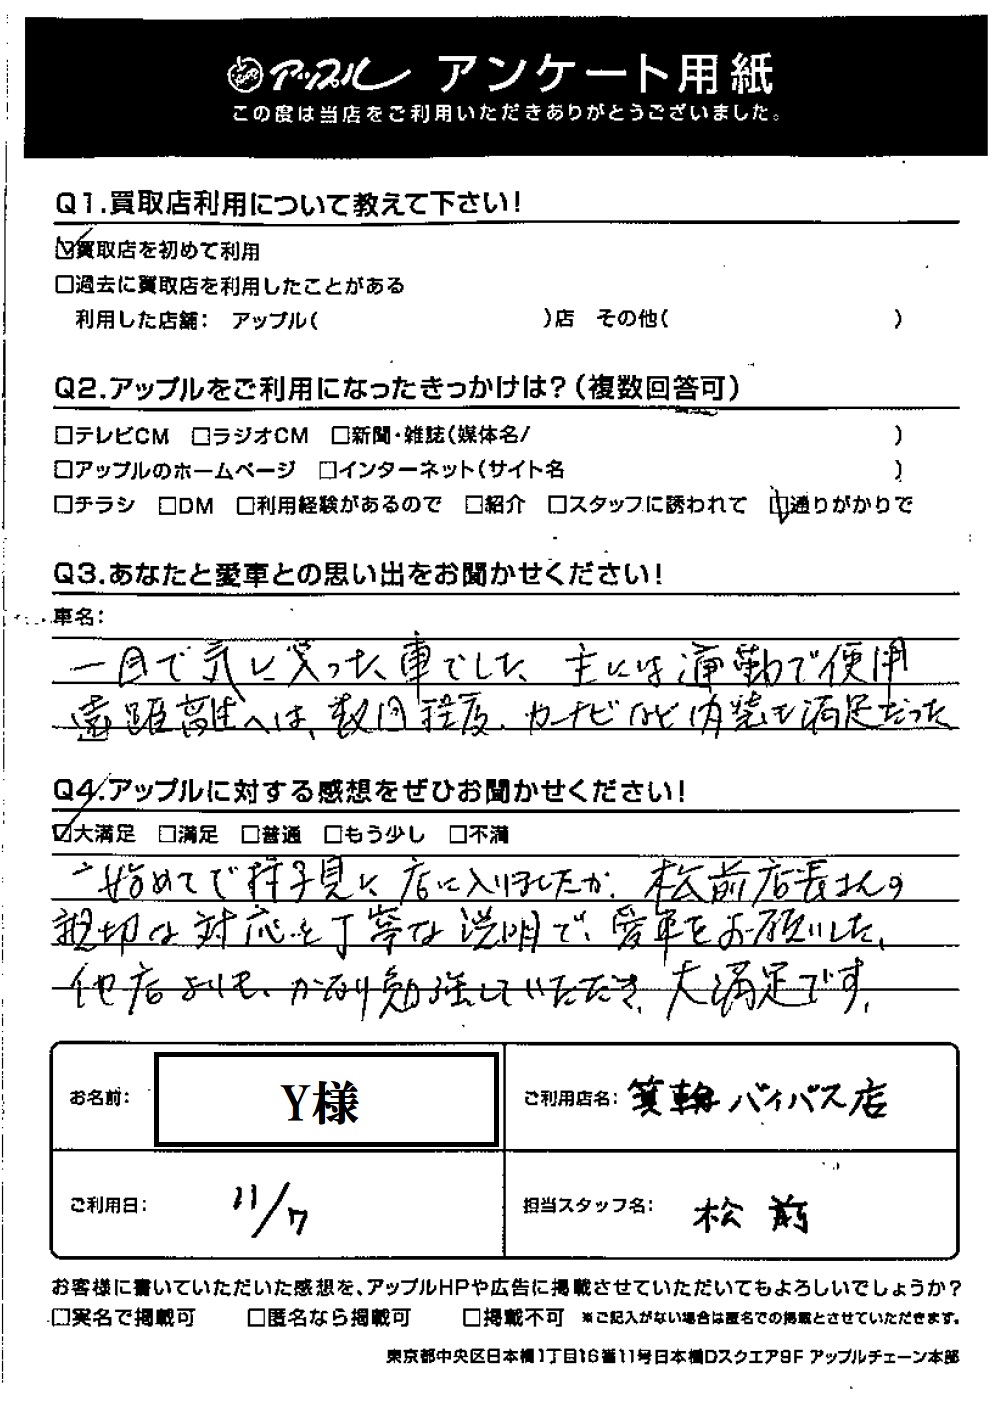 アップル アンケート用紙
この度は当店をご利用いただきありがとうございました。
Q1.買取店利用について教えて下さい!
☑買取店を初めて利用
□過去に買取店を利用したことがある
利用した店舗: アップル( )店 その他( )
Q2.アップルをご利用になったきっかけは?(複数回答可)
□テレビCM □ラジオCM □新聞・雑誌(媒体名/ )
□アップルのホームページ □インターネット(サイト名 )
□チラシ □DM □利用経験があるので □紹介 □スタッフに誘われて ☑通りがかりで
Q3.あなたと愛車との思い出をお聞かせください!
車名:
一目で気に入った車でした、主には通勤で使用
遠距離へは、数回程度、カーナビなど内装も満足だった
Q4.アップルに対する感想をぜひお聞かせください!
☑大満足 □満足 □普通 □もう少し □不満
始めてで様子見に店に入りましたが、松前店長さんの
親切な対応と丁寧な説明で、愛車をお願いした、
他店よりも、かなり勉強していただき、大満足です。
お名前: Y様 ご利用店名: 箕輪バイパス店
ご利用日: 11/7 担当スタッフ名: 松前
お客様に書いていただいた感想を、アップルHPや広告に掲載させていただいてもよろしいでしょうか?
□実名で掲載可 □匿名なら掲載可 □掲載不可 ※ご記入がない場合は匿名での掲載とさせていただきます。
東京都中央区日本橋1丁目16番11号日本橋Dスクエア9F アップルチェーン本部